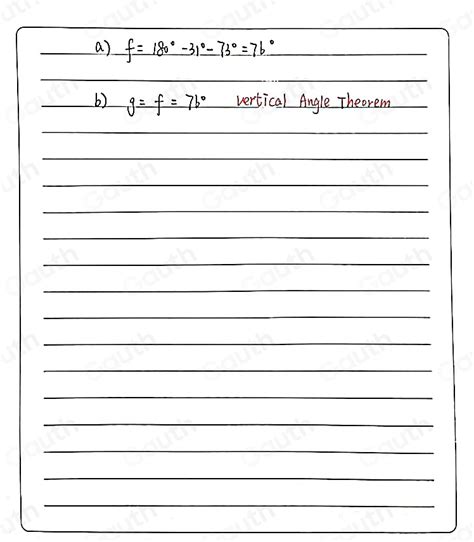 a) f = 180° - 31° - 73° = 76°
b) g = f = 76° vertical Angle Theorem
Gauth